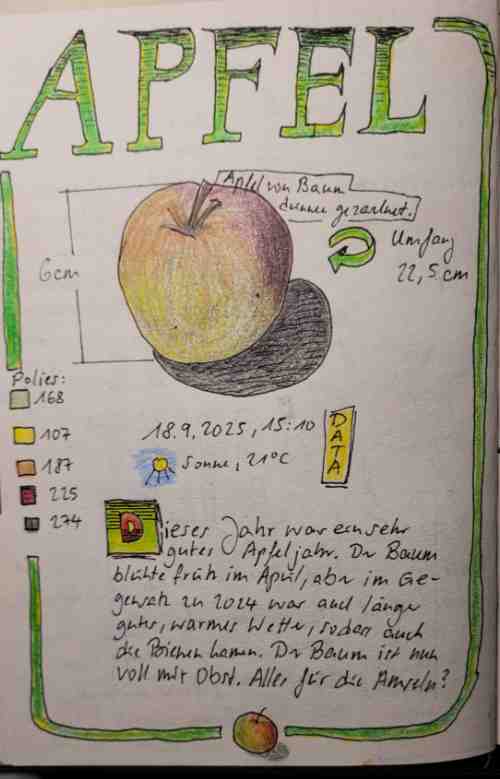 APFEL
Apfel von Baum
gezeichnet.
6cm
Umfang
22,5 cm
Polies:
168
107
187
225
274
18.9.2025, 15:10
Sonne, 21°C
DATA
Dieses Jahr war ein sehr
gutes Apfeljahr. Dr Baum
blühte früh im April, aber im Ge-
gensatz zu 2024 war auch länger
gutes, warmes Wetter, sodass auch
die Bienen kamen. Dr Baum ist nun
voll mit Obst. Alles für die Amseln?